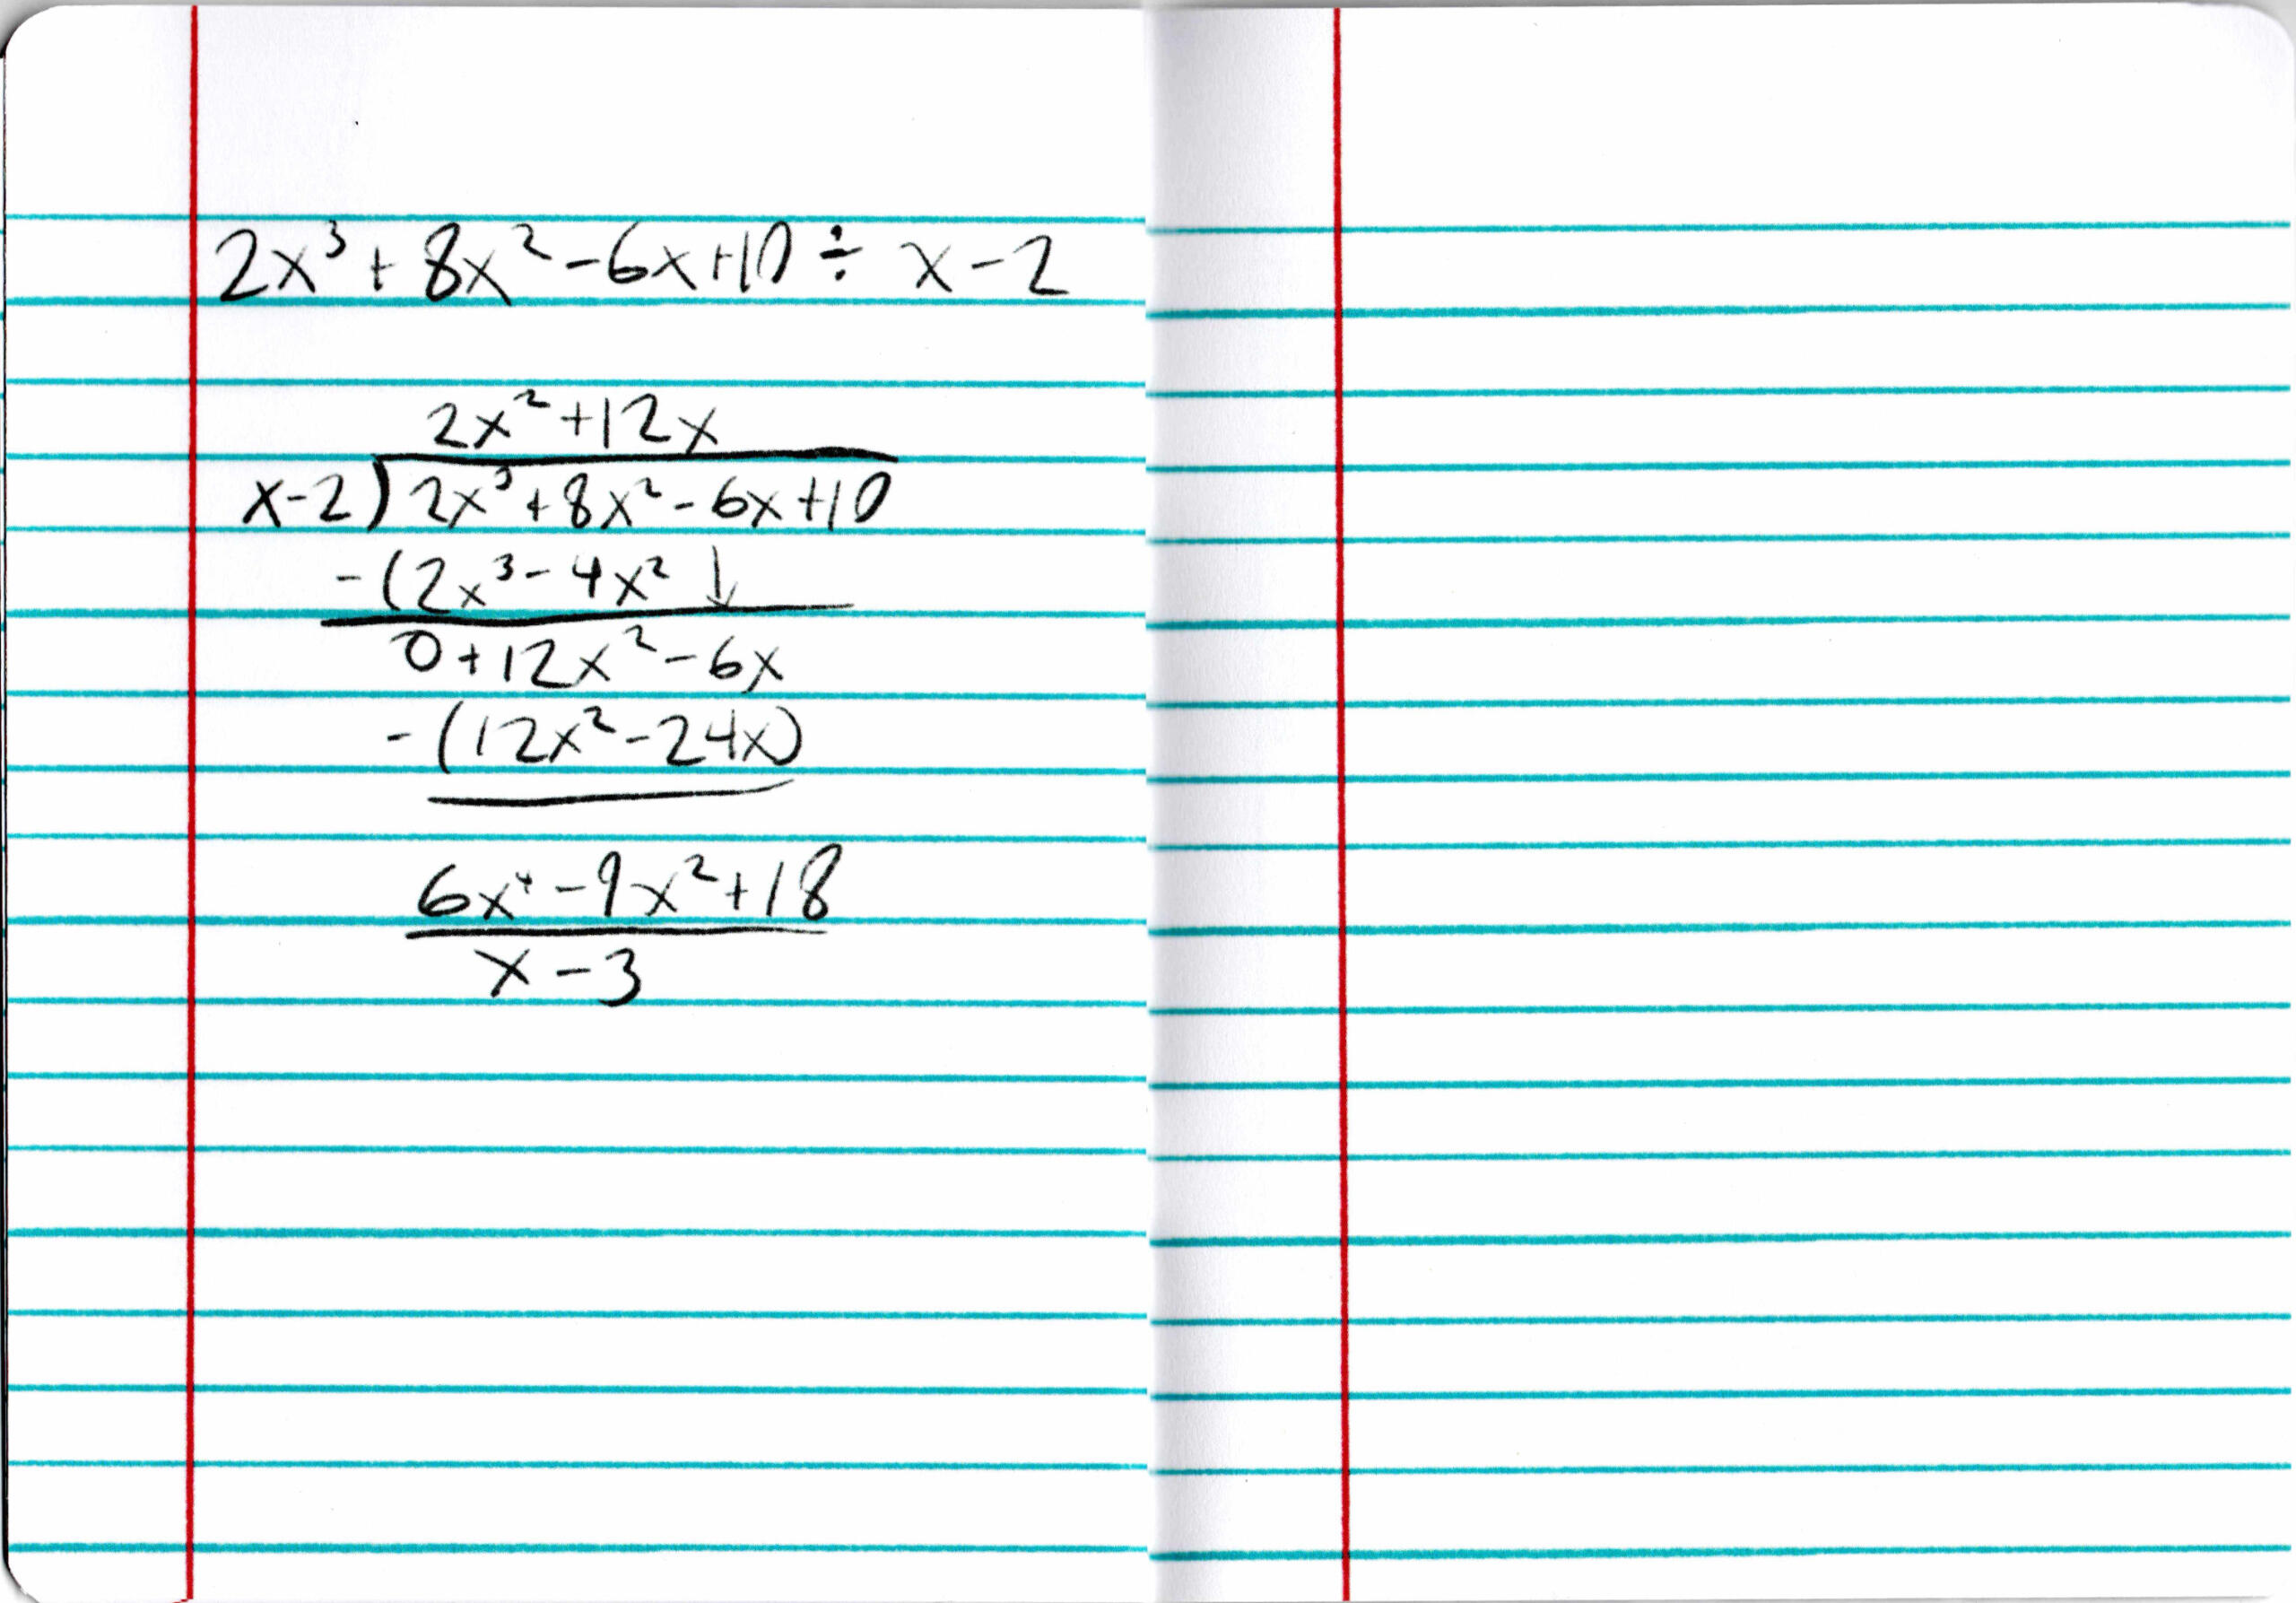 2x³ + 8x² - 6x + 10 ÷ x - 2
2x² + 12x
x - 2 ) 2x³ + 8x² - 6x + 10
- (2x³ - 4x² ↓
0 + 12x² - 6x
- (12x² - 24x)
6x⁴ - 9x² + 18
x - 3